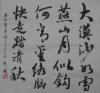 大漠沙如雪
燕山月似鉤
何當金絡腦
快走踏清秋